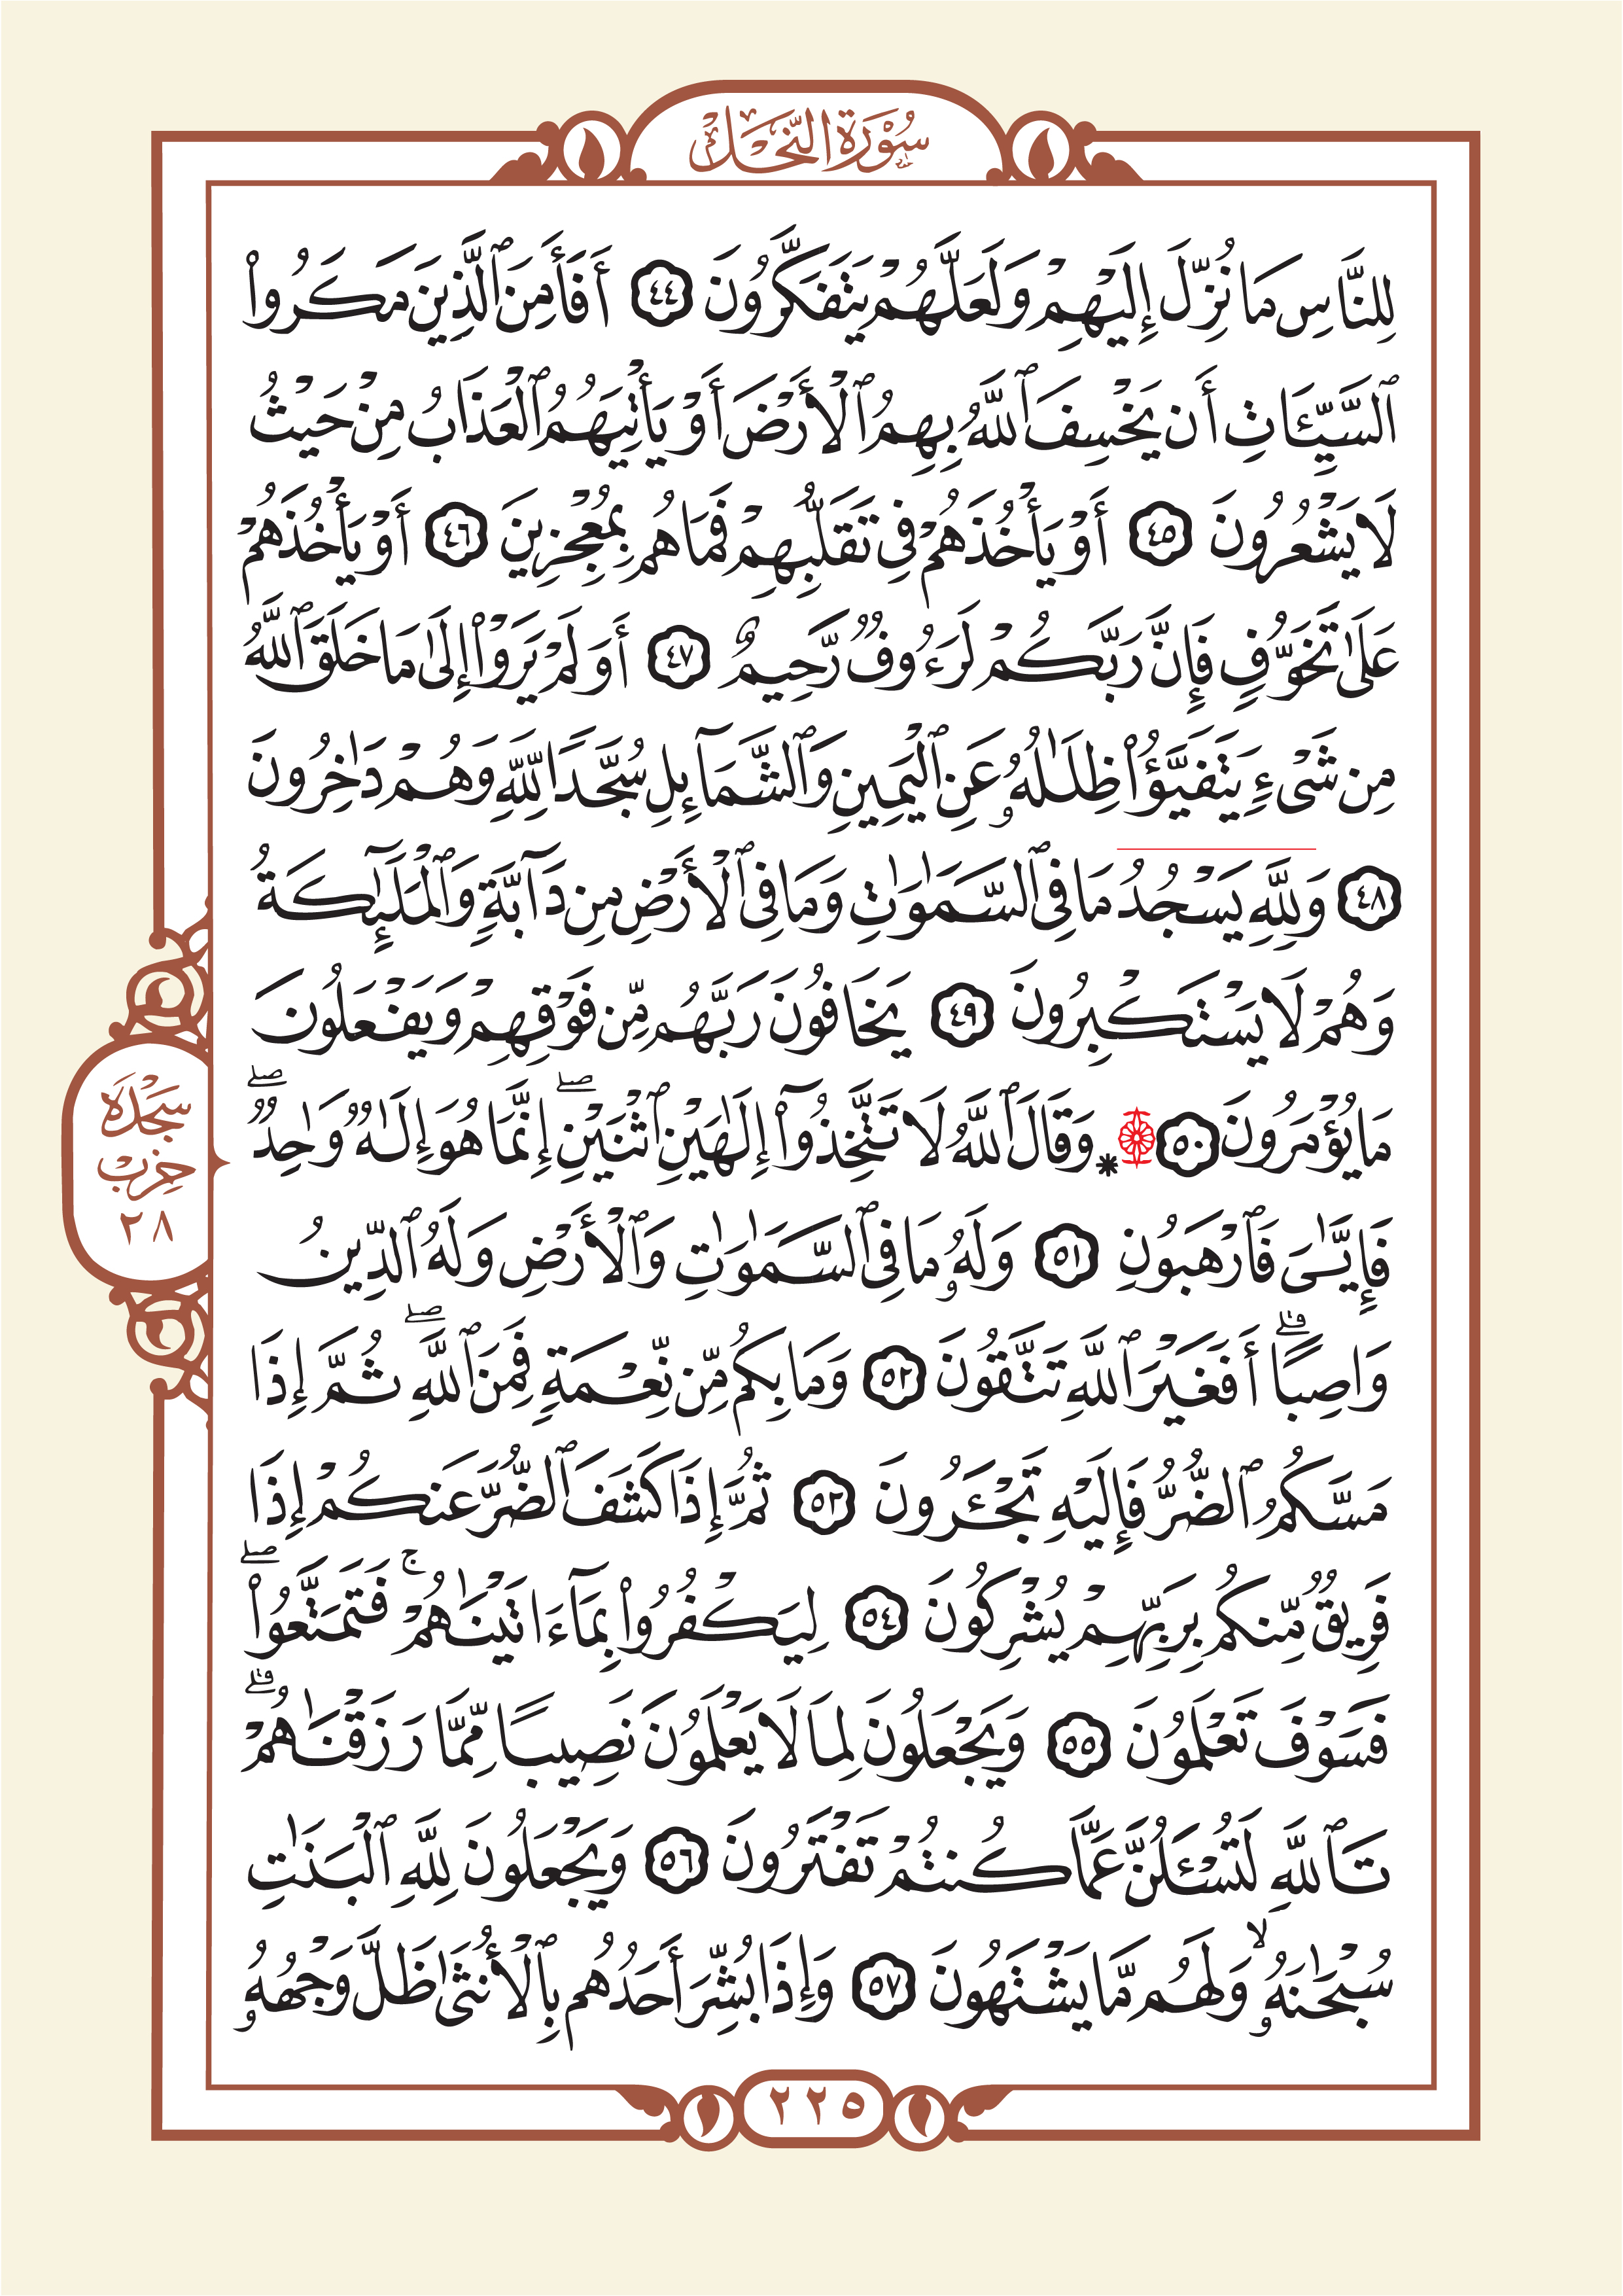 سُورَةُ النَّحۡل
لِلنَّاسِ مَا نُزِّلَ إِلَيۡهِمۡ وَلَعَلَّهُمۡ يَتَفَكَّرُونَ ٤٤ أَفَأَمِنَ ٱلَّذِينَ مَكَرُواْ
ٱلسَّيِّـَٔاتِ أَن يَخۡسِفَ ٱللَّهُ بِهِمُ ٱلۡأَرۡضَ أَوۡ يَأۡتِيَهُمُ ٱلۡعَذَابُ مِنۡ حَيۡثُ
لَا يَشۡعُرُونَ ٤٥ أَوۡ يَأۡخُذَهُمۡ فِي تَقَلُّبِهِمۡ فَمَا هُم بِمُعۡجِزِينَ ٤٦ أَوۡ يَأۡخُذَهُمۡ
عَلَىٰ تَخَوُّفٖ فَإِنَّ رَبَّكُمۡ لَرَءُوفٞ رَّحِيمٌ ٤٧ أَوَلَمۡ يَرَوۡاْ إِلَىٰ مَا خَلَقَ ٱللَّهُ
مِن شَيۡءٖ يَتَفَيَّؤُاْ ظِلَٰلُهُۥ عَنِ ٱلۡيَمِينِ وَٱلشَّمَآئِلِ سُجَّدٗا لِّلَّهِ وَهُمۡ دَٰخِرُونَ
٤٨ وَلِلَّهِۤ يَسۡجُدُۤ مَا فِي ٱلسَّمَٰوَٰتِ وَمَا فِي ٱلۡأَرۡضِ مِن دَآبَّةٖ وَٱلۡمَلَٰٓئِكَةُ
وَهُمۡ لَا يَسۡتَكۡبِرُونَ ٤٩ يَخَافُونَ رَبَّهُم مِّن فَوۡقِهِمۡ وَيَفۡعَلُونَ
مَا يُؤۡمَرُونَ ٥٠ ۩ * وَقَالَ ٱللَّهُ لَا تَتَّخِذُوٓاْ إِلَٰهَيۡنِ ٱثۡنَيۡنِۖ إِنَّمَا هُوَ إِلَٰهٞ وَٰحِدٞۖ
فَإِيَّـٰيَ فَٱرۡهَبُونِ ٥١ وَلَهُۥ مَا فِي ٱلسَّمَٰوَٰتِ وَٱلۡأَرۡضِ وَلَهُ ٱلدِّينُ
وَاصِبًاۚ أَفَغَيۡرَ ٱللَّهِ تَتَّقُونَ ٥٢ وَمَا بِكُم مِّن نِّعۡمَةٖ فَمِنَ ٱللَّهِۖ ثُمَّ إِذَا
مَسَّكُمُ ٱلضُّرُّ فَإِلَيۡهِ تَجۡـَٔرُونَ ٥٣ ثُمَّ إِذَا كَشَفَ ٱلضُّرَّ عَنكُمۡ إِذَا
فَرِيقٞ مِّنكُم بِرَبِّهِمۡ يُشۡرِكُونَ ٥٤ لِيَكۡفُرُواْ بِمَآ ءَاتَيۡنَٰهُمۡۚ فَتَمَتَّعُواْۖ
فَسَوۡفَ تَعۡلَمُونَ ٥٥ وَيَجۡعَلُونَ لِمَا لَا يَعۡلَمُونَ نَصِيبٗا مِّمَّا رَزَقۡنَٰهُمۡۗ
تَٱللَّهِ لَتُسۡـَٔلُنَّ عَمَّا كُنتُمۡ تَفۡتَرُونَ ٥٦ وَيَجۡعَلُونَ لِلَّهِ ٱلۡبَنَٰتِ
سُبۡحَٰنَهُۥ ۙ وَلَهُم مَّا يَشۡتَهُونَ ٥٧ وَإِذَا بُشِّرَ أَحَدُهُم بِٱلۡأُنثَىٰ ظَلَّ وَجۡهُهُۥ
سَجۡدَة
حِزۡب
٢٨
٢٢٥